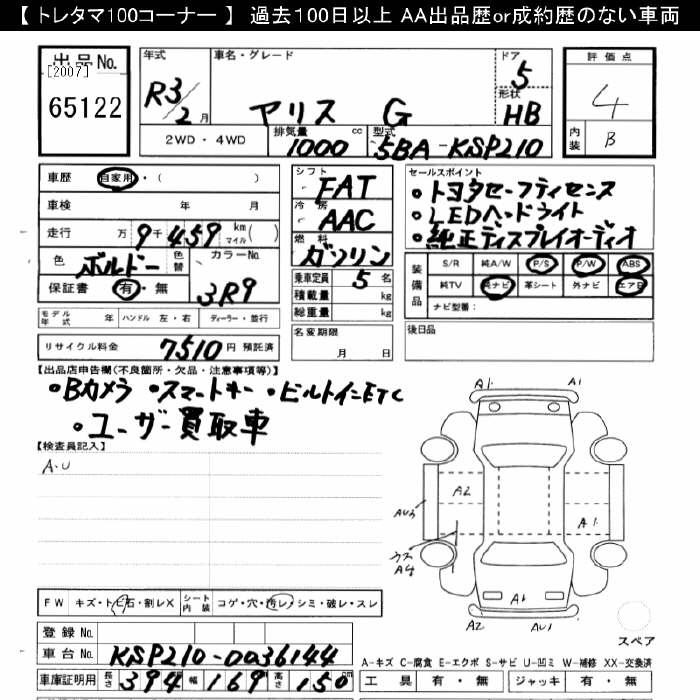 【 トレタマ100コーナー 】 過去100日以上 AA出品歴or成約歴のない車両
出品No.
[2007]
65122
年式 R3/2月
車名・グレード
ヤリス G
ドア 5
形状 HB
2WD・4WD
排気量 1000 cc
型式 5BA-KSP210
評価点 4
内装 B
車歴 自家用・( )
車検 年 月
走行 万 9千459 km マイル( )
色 ボルドー 色替
カラーNo. 3R9
保証書 有・無
シフト FAT
冷房 AAC
燃料 ガソリン
乗車定員 5 名
積載量 kg
総重量 kg
セールスポイント
・トヨタセーフティセンス
・LEDヘッドライト
・純正ディスプレイオーディオ
装備品 S/R 純A/W P/S P/W ABS
純TV 純ナビ 革シート 外ナビ エアB
ナビ型番:
モデル年式 年 ハンドル 左・右 ディーラー・並行
名変期限 月 日
後日品
リサイクル料金 7510 円 預託済
【出品店申告欄(不良箇所・欠品・注意事項等)】
・Bカメラ ・スマートキー ・ビルトインETC
・ユーザー買取車
【検査員記入】
A・U
A1 A1
A2
AU3
A1
ウス
A4
A1
A2 AU1
スペア
FW キズ・トビ石・割レX シート内装 コゲ・穴・汚レ・シミ・破レ・スレ
登録No.
車台No. KSP210-0036144
車庫証明用 長さ 394 幅 169 高さ 150 cm
A-キズ C-腐食 E-エクボ S-サビ U-凹ミ W-補修 XX-交換済
工具 有・無 ジャッキ 有・無